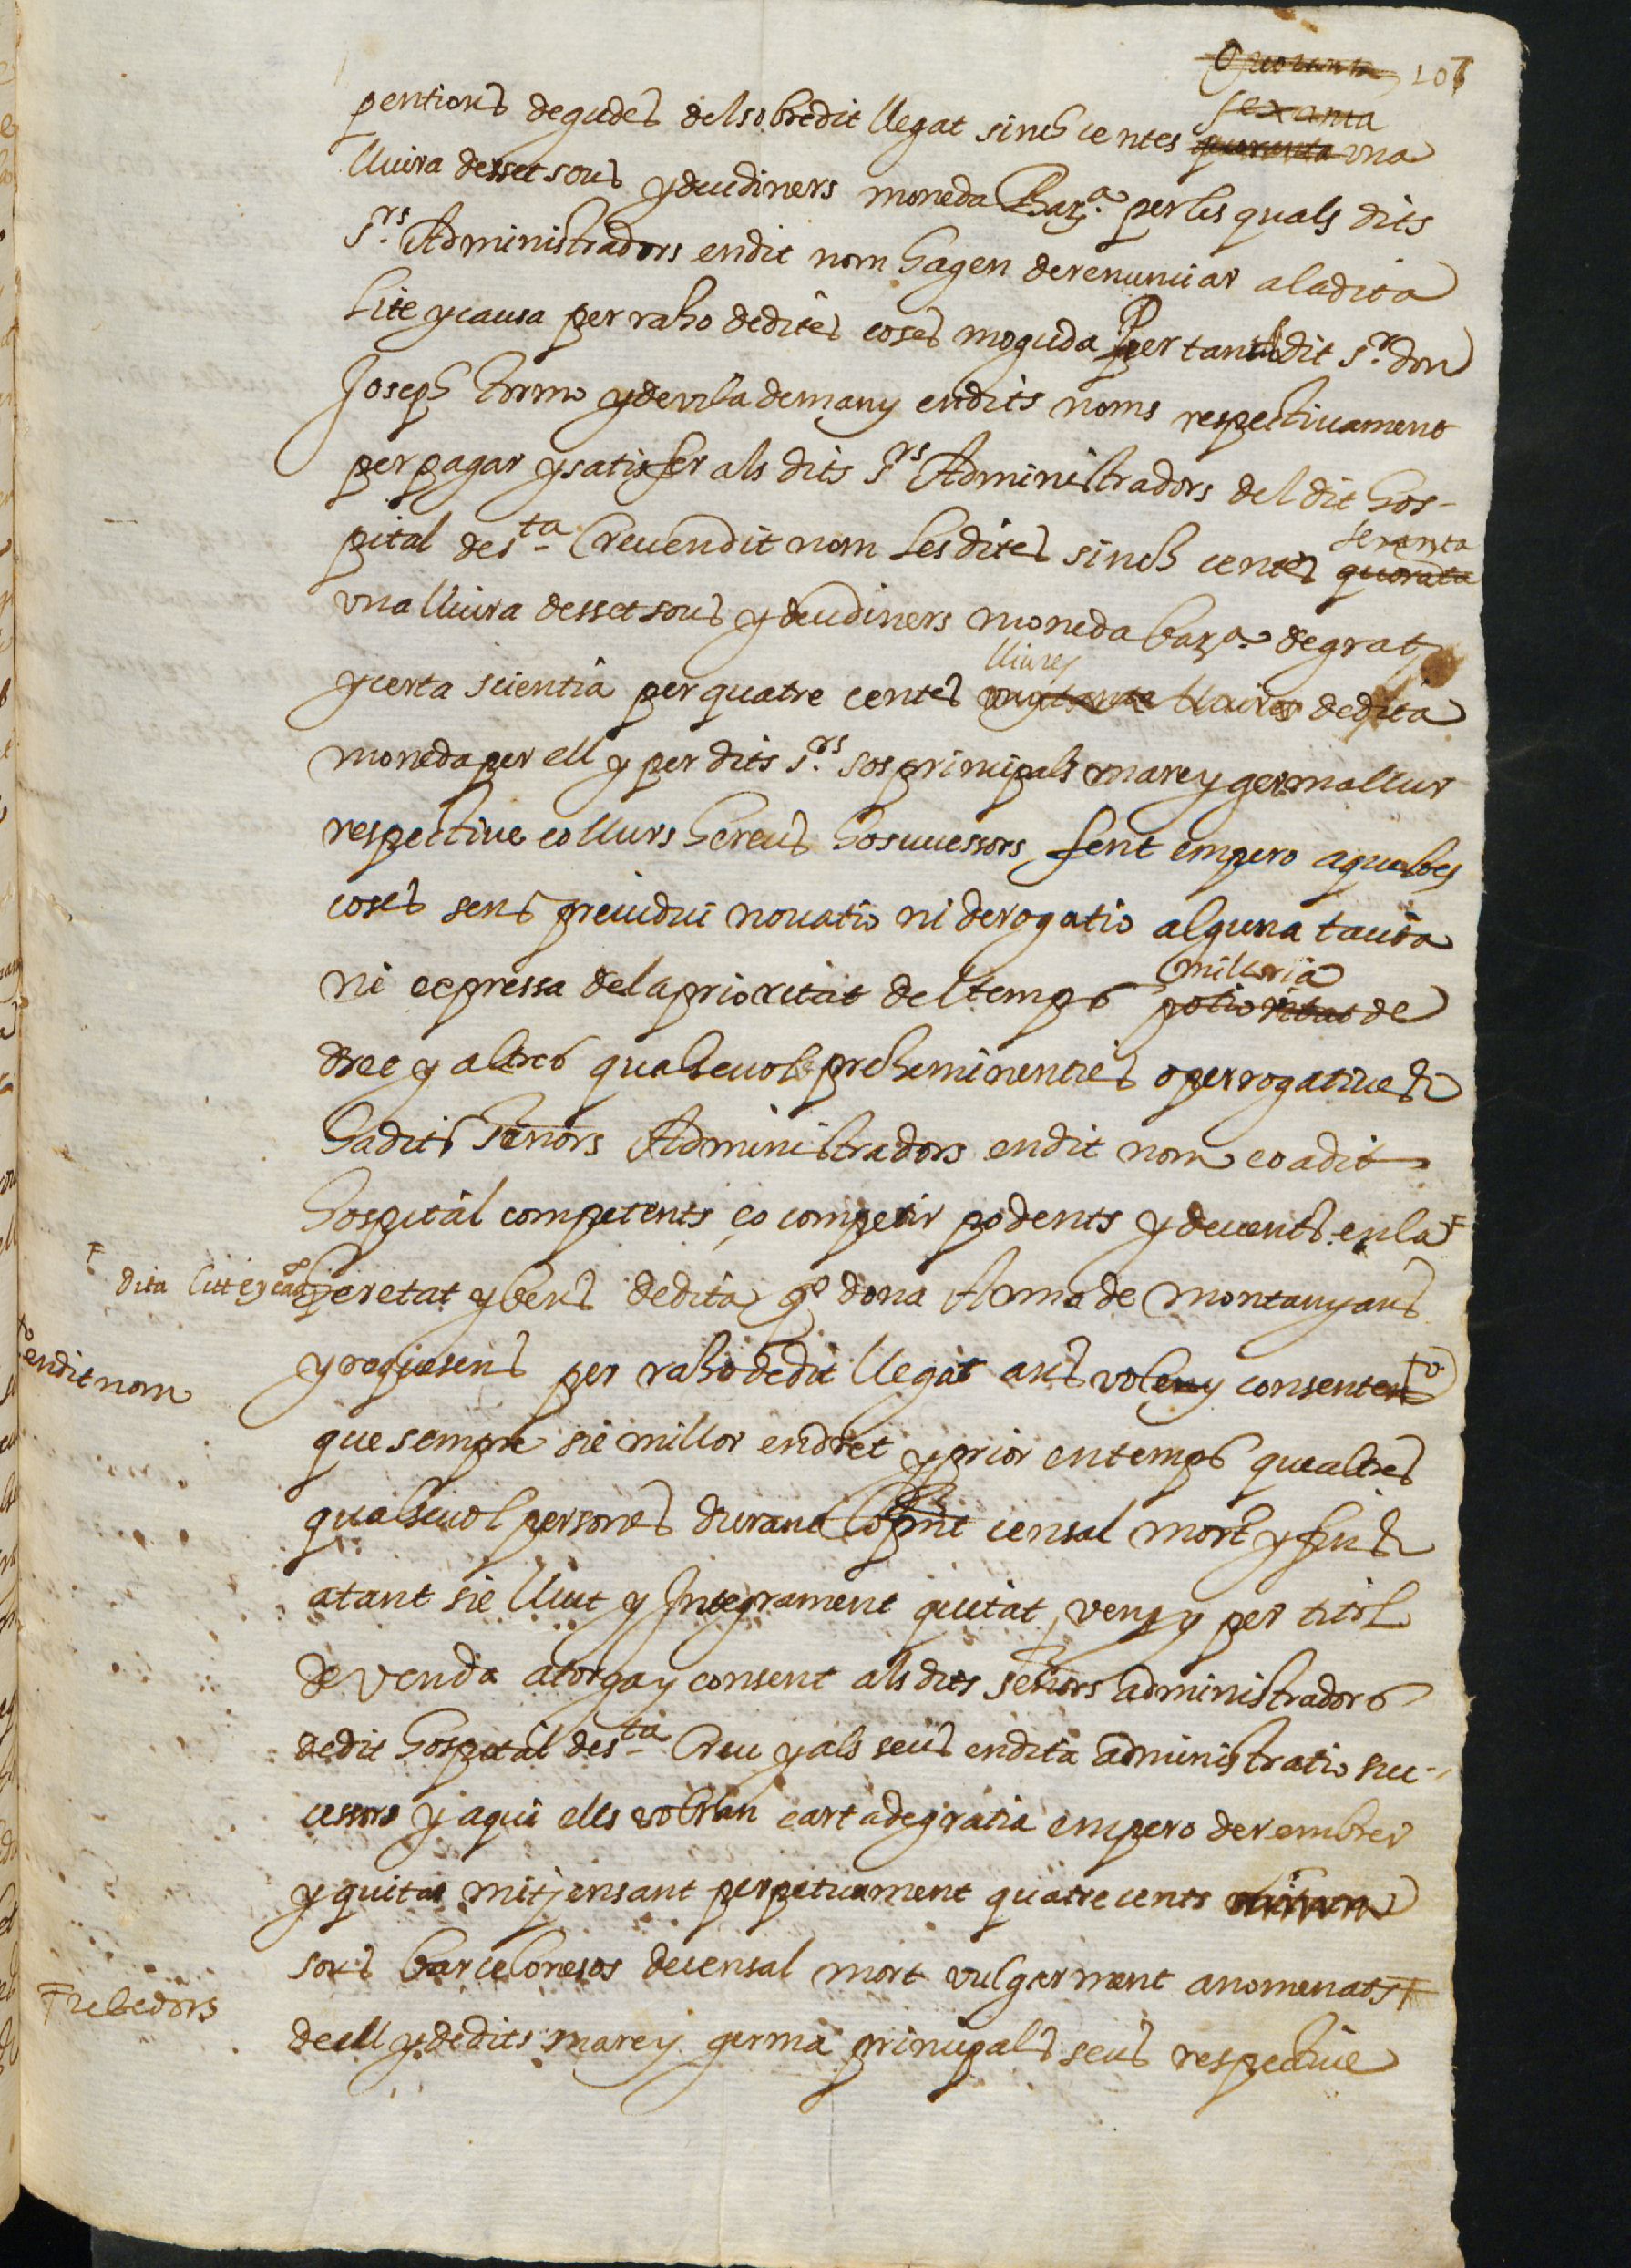 107
sexanta
pentions degudes del sobredit llegat sinch centes quoranta una
lliura desset sous y deu diners moneda Barª. per les quals dits
Srs. Administradors en dit nom hagen de renunciar a la dita
lite y causa per raho de dites coses moguda Per tant lo dit Sr. don
Joseph Torme y de vilademany en dits noms respectivament
per pagar y satisfer als dits Srs Administradors del dit hos-
pital de Sta Creu en dit nom les dites sinch centes sexanta quoranta
una lliura desset sous y deu diners moneda barª. de grat
y certa scientia per quatre centes lliures lliures de dita
moneda per ell y per dits Srs. sos principals mare y germa llur
respective e o llurs hereus ho successors, sent empero aquestes
coses sens preiudici novatio ni derogatio alguna tacita
ni expressa de la prioritat del temps milloria potioritat de
dret y altres qualsevol preheminenties o perrogatives
ha dits senors Administradors en dit nom e o a dit
hospital competents, e o competir podents y devents en la
dita litt y causa
heretat y bens de dita qº dona Anna de Montanyans
y requesens per raho de dit llegat ans vol y consent
en dit nom
que sempre sie millor en dret y prior en temps que altres
qualsevol persones durant lo pnt censal mort y fins
a tant sie lluit y Integrament quitat, ven y per titol
de venda atorga y consent als dits señors administradors
de dit hospital de Sta Creu y als seus en dita administratio suc-
cessors y a qui ells volran carta de gratia empero de rembrer
y quitar mitjensant perpetuament quatre cents
sous barcelonesos de censal mort vulgarment anomenats
rebedors
de ell y de dits mare y germa principals seus respective